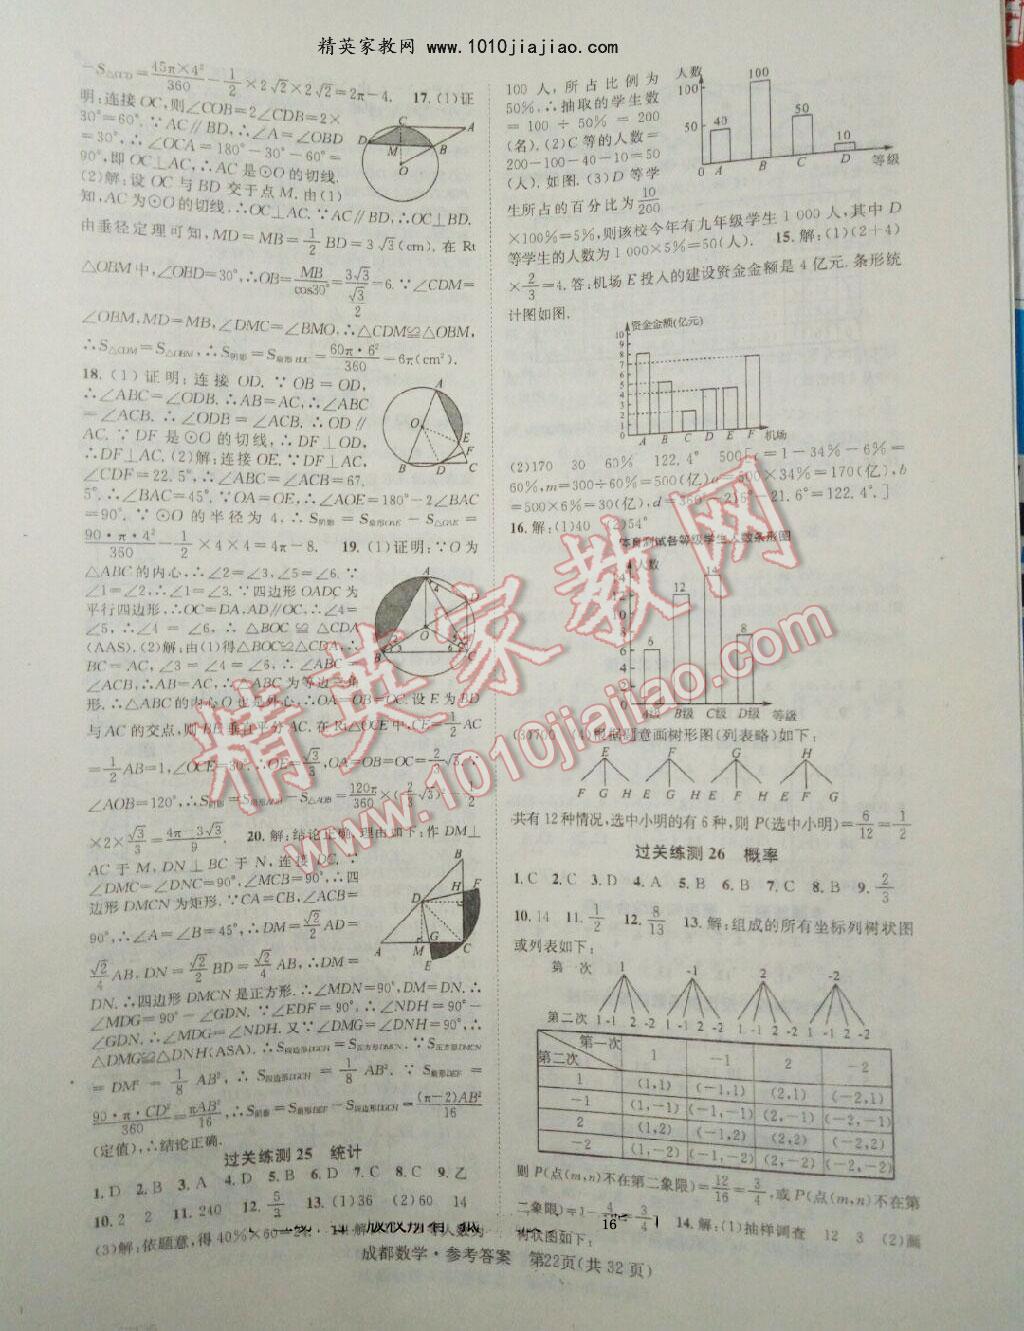 精英家教网 www.1010jiajiao.com
－S△OCD＝45π×4²/360－1/2×2√2×2√2＝2π－4. 17.(1)证
明:连接OC,则∠COB＝2∠CDB＝2×
30°＝60°. ∵AC∥BD,∴∠A＝∠OBD
＝30°,∴∠OCA＝180°－30°－60°＝
90°,即OC⊥AC,∴AC是⊙O的切线.
(2)解:设OC与BD交于点M,由(1)
知,AC为⊙O的切线.∴OC⊥AC.∵AC∥BD,∴OC⊥BD.
由垂径定理可知,MD＝MB＝1/2BD＝3√3(cm).在Rt
△OBM中,∠OBD＝30°,∴OB＝MB/cos30°＝3√3/(√3/2)＝6.∵∠CDM＝
∠OBM,MD＝MB,∠DMC＝∠BMO.∴△CDM≌△OBM,
∴S△CDM＝S△OBM,∴S阴影＝S扇形BOC＝60π·6²/360＝6π(cm²).
18.(1)证明:连接OD.∵OB＝OD,
∴∠ABC＝∠ODB.∴AB＝AC,∴∠ABC
＝∠ACB.∴∠ODB＝∠ACB.∴OD∥
AC.∵DF是⊙O的切线,∴DF⊥OD,
∴DF⊥AC.(2)解:连接OE.∵DF⊥AC,
∠CDF＝22.5°,∴∠ABC＝∠ACB＝67.
5°,∴∠BAC＝45°.∵OA＝OE,∴∠AOE＝180°－2∠BAC
＝90°.∵⊙O的半径为4,∴S阴影＝S扇形OAE－S△OAE＝
90·π·4²/360－1/2×4×4＝4π－8. 19.(1)证明:∵O为
△ABC的内心,∴∠2＝∠3,∠5＝∠6.∵
∠1＝∠2,∴∠1＝∠3.∵四边形OADC为
平行四边形,∴OC＝DA,AD∥OC,∴∠4＝
∠5,∴∠4＝∠6,∴△BOC≌△CDA
(AAS).(2)解:由(1)得△BOC≌△CDA,∴
BC＝AC,∠3＝∠4＝∠6,∴∠ABC＝
∠ACB,∴AB＝AC,∴△ABC为等边三角
形.∴△ABC的内心O也是外心,∴OA＝OB＝OC.设E为BD
与AC的交点,则BE垂直平分AC.在Rt△OCE中,CE＝1/2AC
＝1/2AB＝1,∠OCE＝30°,∴OE＝√3/3,∴OA＝OB＝OC＝2/3√3.∵
∠AOB＝120°,∴S阴影＝S扇形AOB－S△AOB＝120π/360×(2/3√3)²－1/2
×2×√3/3＝(4π－3√3)/9. 20.解:结论正确.理由如下:作DM⊥
AC于M,DN⊥BC于N,连接DC.∵
∠DMC＝∠DNC＝90°,∠MCB＝90°,∴四
边形DMCN为矩形.∵CA＝CB,∠ACB＝
90°,∴∠A＝∠B＝45°,∴DM＝√2/2AD＝
√2/4AB,DN＝√2/2BD＝√2/4AB,∴DM＝
DN.∴四边形DMCN是正方形.∴∠MDN＝90°,DM＝DN.∴
∠MDG＝90°－∠GDN.∵∠EDF＝90°,∴∠NDH＝90°－
∠GDN.∴∠MDG＝∠NDH.又∵∠DMG＝∠DNH＝90°,∴
△DMG≌△DNH(ASA).∴S四边形DGCH＝S正方形DMCN.∵S正方形DMCN
＝DM²＝1/8AB²,∴S四边形DGCH＝1/8AB².∵S扇形DEF＝
90·π·CD²/360＝πAB²/16,∴S阴影＝S扇形DEF－S四边形DGCH＝(π－2)AB²/16
(定值),∴结论正确.
过关练测25 统计
1.D 2.B 3.A 4.D 5.B 6.D 7.C 8.C 9.乙
10.2 2 11.240 12.5/3 13.(1)36 (2)60 14
(3)解:依题意,得40%×60
版权所有
100人,所占比例为
50%,∴抽取的学生数
＝100÷50%＝200
(名).(2)C等的人数＝
200－100－40－10＝50
(人).如图.(3)D等学
生所占的百分比为10/200
×100%＝5%,则该校今年有九年级学生1 000人,其中D
等学生的人数为1 000×5%＝50(人). 15.解:(1)(2＋4)
×2/3＝4.答:机场E投入的建设资金金额是4亿元.条形统
计图如图.
人数
100
50
40 100 50 10
A B C D 等级
资金金额(亿元)
10
9
8
7
6
5
4
3
2
1
0
A B C D E F 机场
(2)170 30 60% 122.4° 500
60%,m＝300÷60%＝500(亿),a＝500×34%＝170(亿),b
＝500×6%＝30(亿),d＝360°－216°－21.6°＝122.4°.]
16.解:(1)40 (2)54°
体育测试各等级学生人数条形图
人数
14
12
10
8
6
4
2
0
6 12 14 8
A级 B级 C级 D级 等级
(3)700 (4)根据题意画树形图(列表略)如下:
E F G H
F G H E G H E F H E F G
共有12种情况,选中小明的有6种,则P(选中小明)＝6/12＝1/2
过关练测26 概率
1.C 2.C 3.D 4.A 5.B 6.B 7.C 8.B 9.2/3
10.14 11.1/2 12.8/13 13.解:组成的所有坐标列树状图
或列表如下:
第一次 1 -1 2 -2
第二次 1 -1 2 -2 1 -1 2 -2 1 -1 2 -2 1 -1 2 -2
第一次 第二次 1 －1 2 －2
1 (1,1) (－1,1) (2,1) (－2,1)
－1 (1,－1) (－1,－1) (2,－1) (－2,－1)
2 (1,2) (－1,2) (2,2) (－2,2)
－2 (1,－2) (－1,－2) (2,－2) (－2,－2)
则P(点(m,n)不在第二象限)＝12/16＝3/4,或P(点(m,n)不在第
二象限)＝1－4/16＝3/4 14.解:(1)抽样调查 12 3 (2)画
树状图如下:
成都数学·参考答案 第22页(共32页)
精英家教网
www.1010jiajiao.com